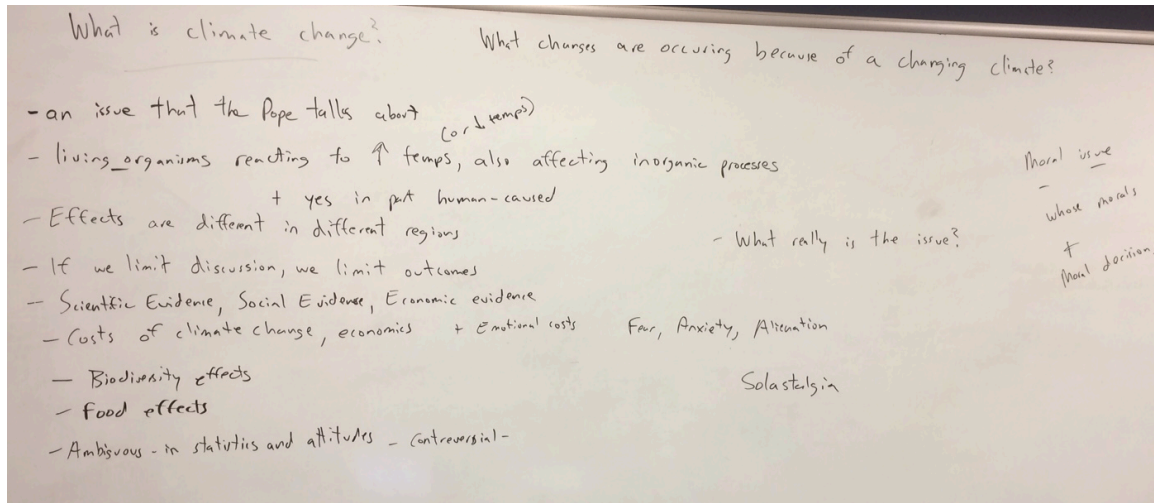 What is climate change?
What changes are occuring because of a changing climate?
- an issue that the Pope talks about
(or ↓ temps)
- living organisms reacting to ↑ temps, also affecting inorganic processes
+ yes in part human-caused
- Effects are different in different regions
- If we limit discussion, we limit outcomes
- Scientific Evidence, Social Evidence, Economic evidence
- Costs of climate change, economics + Emotional costs Fear, Anxiety, Alienation
- Biodiversity effects
Solastalgia
- Food effects
- Ambiguous - in statistics and attitudes - Contreversial -
- What really is the issue?
Moral issue
whose morals
+
Moral decision